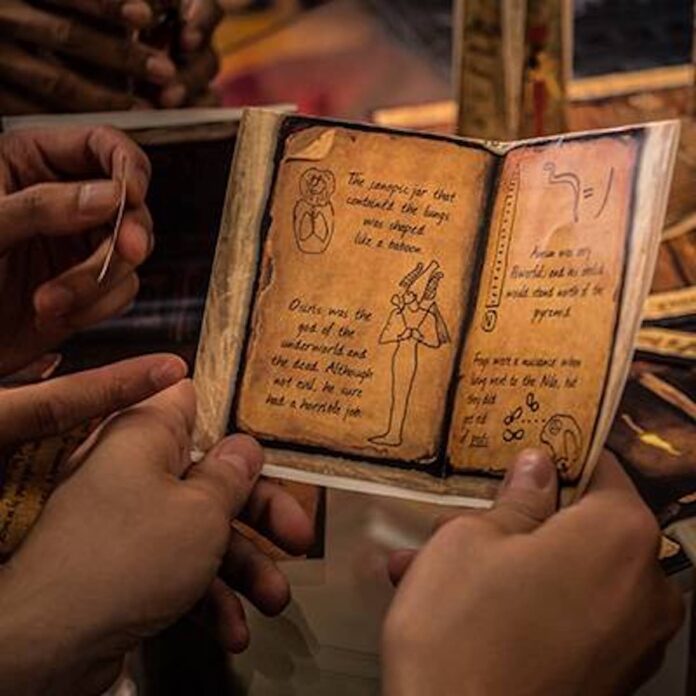 The canopic jar that
contained the lungs
was shaped
like a baboon.
Osiris was the
god of the
underworld and
the dead. Although
not evil, he sure
had a horrible job.
was very
Powerful and his
would stand north of the
pyramid.
Frogs were a nuisance when
living next to the Nile, but
they did
get rid
of pests.